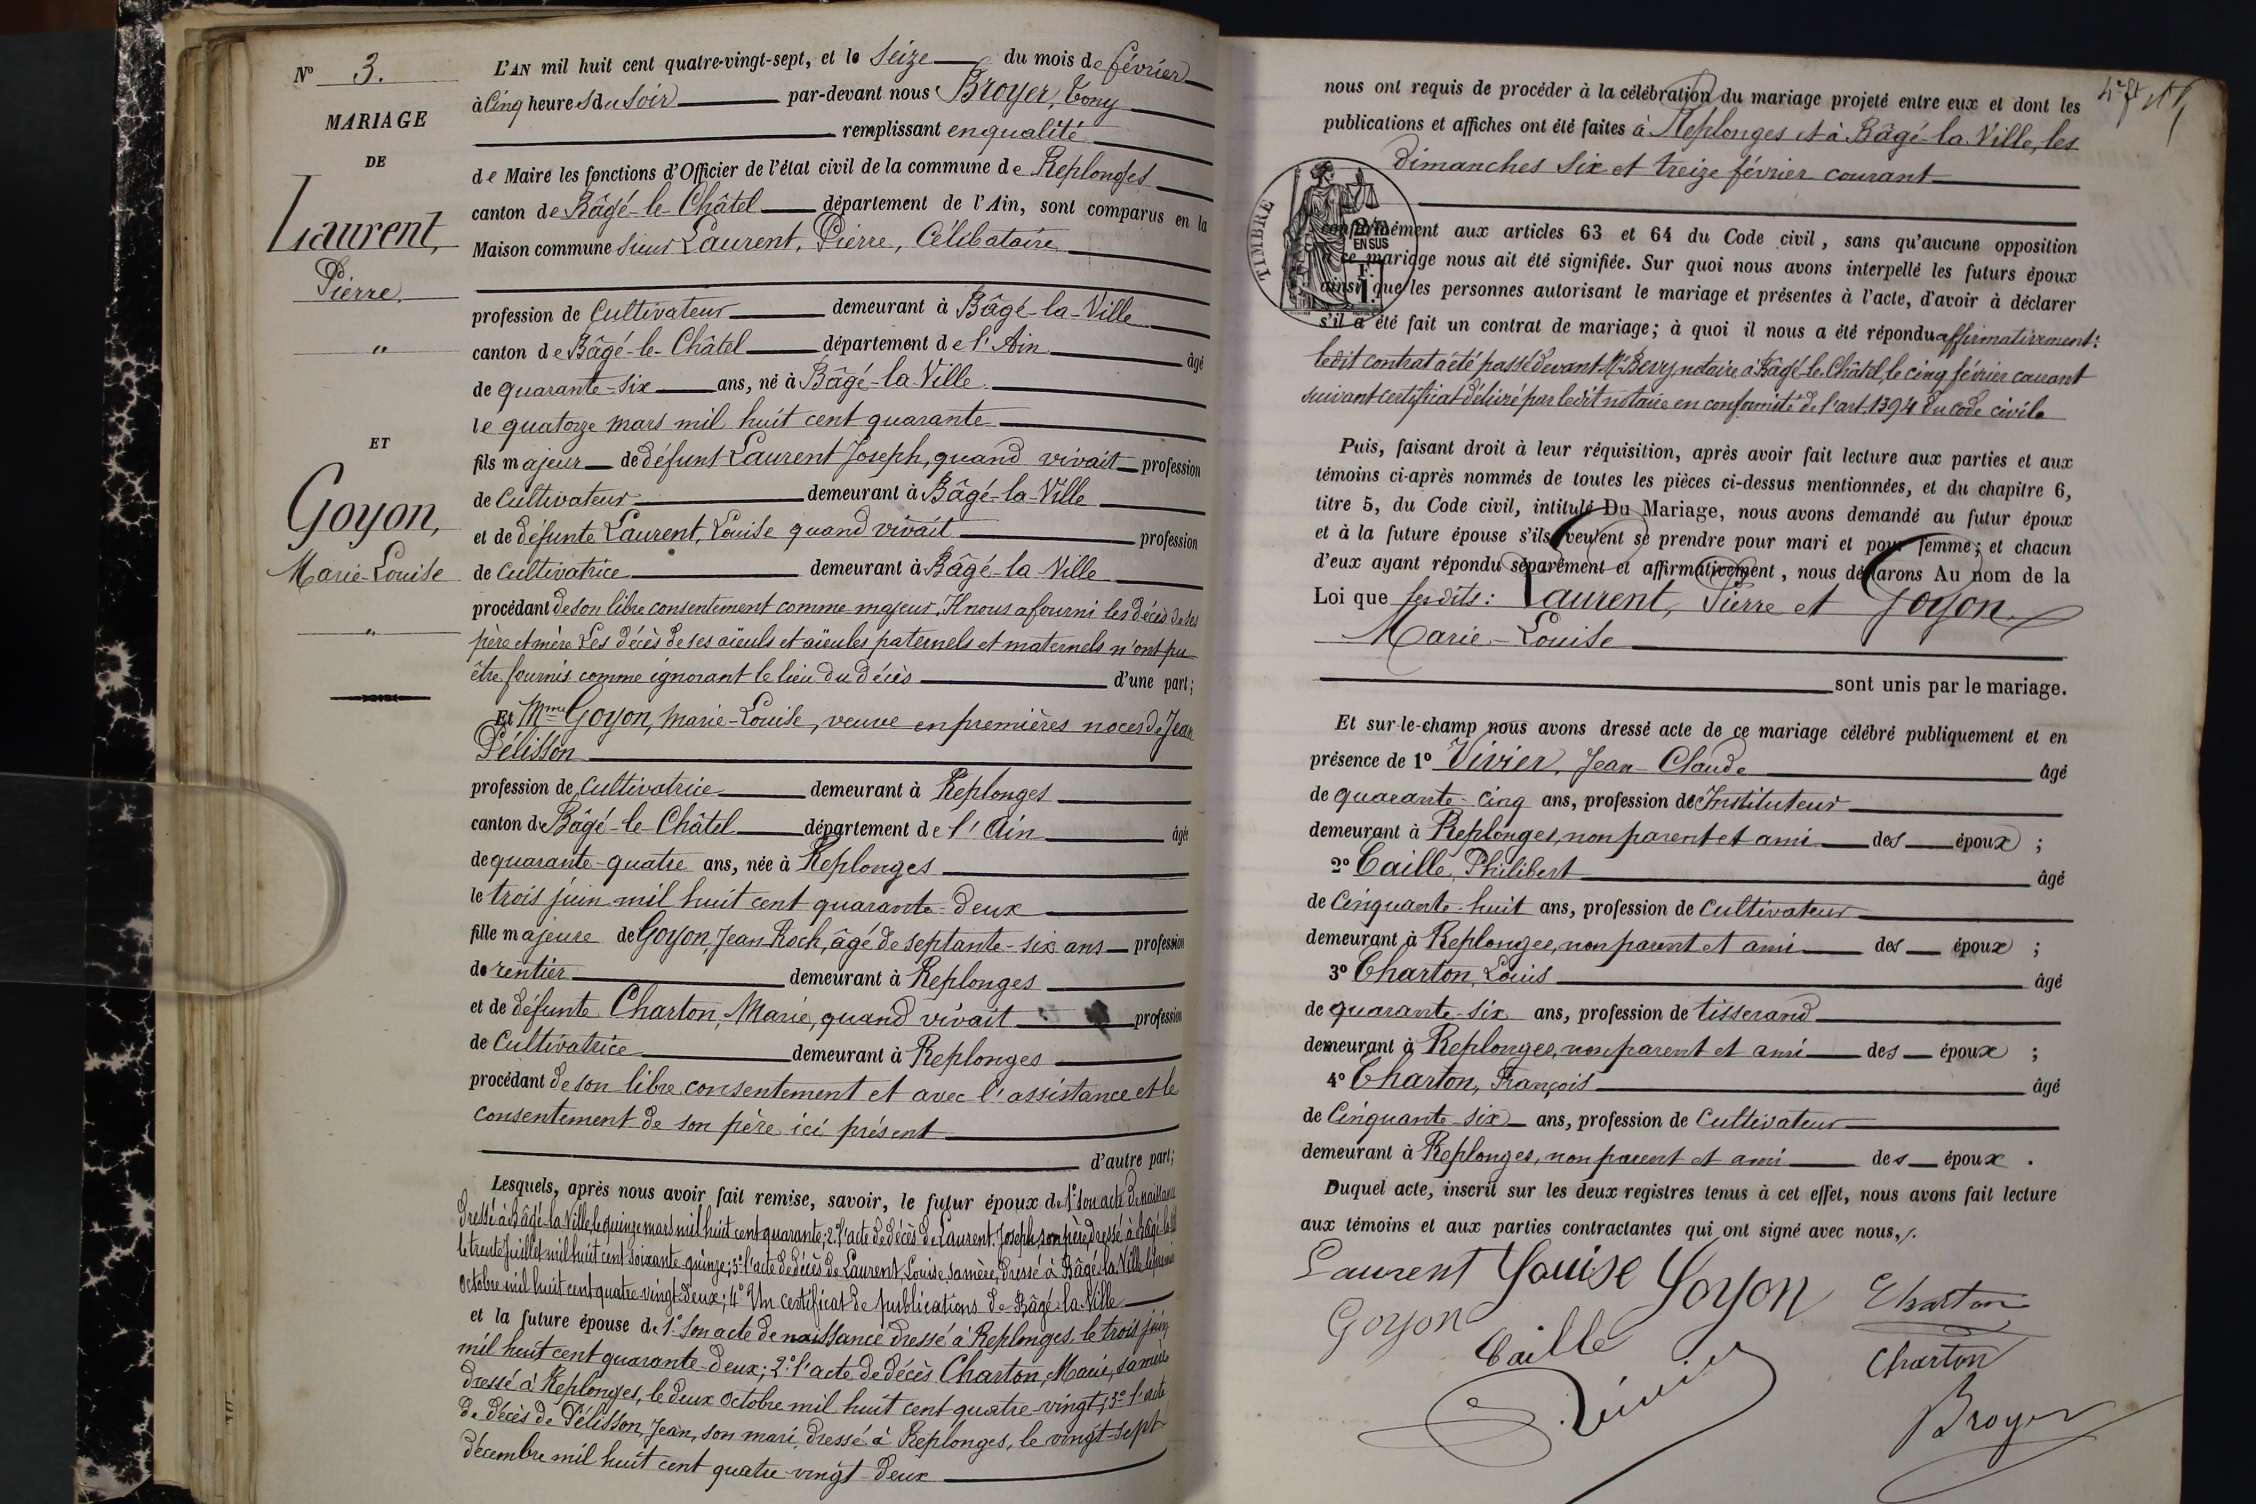 N° 3.
MARIAGE
DE
Laurent,
Pierre.
"
ET
Goyon,
Marie-Louise
"
L'AN mil huit cent quatre-vingt-sept, et le seize du mois de février
à cinq heures du soir par-devant nous Broyer, Tony
remplissant en qualité
de Maire les fonctions d'Officier de l'état civil de la commune de Replonges
canton de Bâgé-le-Châtel département de l'Ain, sont comparus en la
Maison commune sieur Laurent, Pierre, Célibataire
profession de cultivateur demeurant à Bâgé-la-Ville
canton de Bâgé-le-Châtel département de l'Ain âgé
de quarante-six ans, né à Bâgé-la-Ville
le quatorze mars mil huit cent quarante
fils majeur de défunt Laurent Joseph, quand vivait profession
de cultivateur demeurant à Bâgé-la-Ville
et de défunte Laurent, Louise quand vivait profession
de cultivatrice demeurant à Bâgé-la-Ville
procédant de son libre consentement comme majeur. Il nous a fourni les décès de ses
père et mère Les décès de ses aïeuls et aïeules paternels et maternels n'ont pu
être fournis comme ignorant le lieu du décès d'une part;
Et Mme Goyon, Marie-Louise, veuve en premières noces de Jean
Pélisson
profession de cultivatrice demeurant à Replonges
canton de Bâgé-le-Châtel département de l'Ain âgée
de quarante-quatre ans, née à Replonges
le trois juin mil huit cent quarante-deux
fille majeure de Goyon, Jean Roch, âgé de septante-six ans profession
de rentier demeurant à Replonges
et de défunte Charton, Marie, quand vivait profession
de Cultivatrice demeurant à Replonges
procédant de son libre consentement et avec l'assistance et le
consentement de son père ici présent
d'autre part;
Lesquels, après nous avoir fait remise, savoir, le futur époux de 1° son acte de naissance
dressé à Bâgé-la-Ville, le quinze mars mil huit cent quarante; 2° l'acte de décès de Laurent Joseph, son père, dressé à Bâgé-la-Ville
le trente Juillet mil huit cent soixante-quinze; 3° l'acte de décès de Laurent, Louise, sa mère, dressé à Bâgé-la-Ville le
octobre mil huit cent quatre-vingt-deux; 4° Un certificat de publications de Bâgé-la-Ville
et la future épouse de 1° Son acte de naissance dressé à Replonges le trois juin
mil huit cent quarante-deux; 2° l'acte de décès Charton, Marie, sa mère
dressé à Replonges, le deux octobre mil huit cent quatre-vingt; 3° l'acte
de décès de Pélisson, Jean, son mari, dressé à Replonges, le vingt-sept
décembre mil huit cent quatre-vingt-deux
nous ont requis de procéder à la célébration du mariage projeté entre eux et dont les
publications et affiches ont été faites à Replonges et à Bâgé-la-Ville, les
dimanches six et treize février courant
TIMBRE
EN SUS
conformément aux articles 63 et 64 du Code civil, sans qu'aucune opposition
à ce mariage nous ait été signifiée. Sur quoi nous avons interpellé les futurs époux
ainsi que les personnes autorisant le mariage et présentes à l'acte, d'avoir à déclarer
s'il a été fait un contrat de mariage; à quoi il nous a été répondu affirmativement:
ledit contrat a été passé devant Me Bevy notaire à Bâgé-le-Châtel, le cinq février courant
suivant certificat délivré par ledit notaire en conformité de l'art. 1394 du code civil
Puis, faisant droit à leur réquisition, après avoir fait lecture aux parties et aux
témoins ci-après nommés de toutes les pièces ci-dessus mentionnées, et du chapitre 6,
titre 5, du Code civil, intitulé Du Mariage, nous avons demandé au futur époux
et à la future épouse s'ils veulent se prendre pour mari et pour femme; et chacun
d'eux ayant répondu séparément et affirmativement, nous déclarons Au nom de la
Loi que lesdits: Laurent, Pierre et Goyon,
Marie-Louise
sont unis par le mariage.
Et sur-le-champ nous avons dressé acte de ce mariage célébré publiquement et en
présence de 1° Vivier, Jean-Claude âgé
de quarante-cinq ans, profession de Instituteur
demeurant à Replonges, non parent et ami des époux ;
2° Caille, Philibert âgé
de cinquante-huit ans, profession de cultivateur
demeurant à Replonges, non parent et ami des époux ;
3° Charton, Louis âgé
de quarante-six ans, profession de tisserand
demeurant à Replonges, non parent et ami des époux ;
4° Charton, François âgé
de Cinquante-six ans, profession de Cultivateur
demeurant à Replonges, non parent et ami des époux .
Duquel acte, inscrit sur les deux registres tenus à cet effet, nous avons fait lecture
aux témoins et aux parties contractantes qui ont signé avec nous,
Laurent Louise Goyon Charton
Goyon Caille Charton
Vivier Broyer